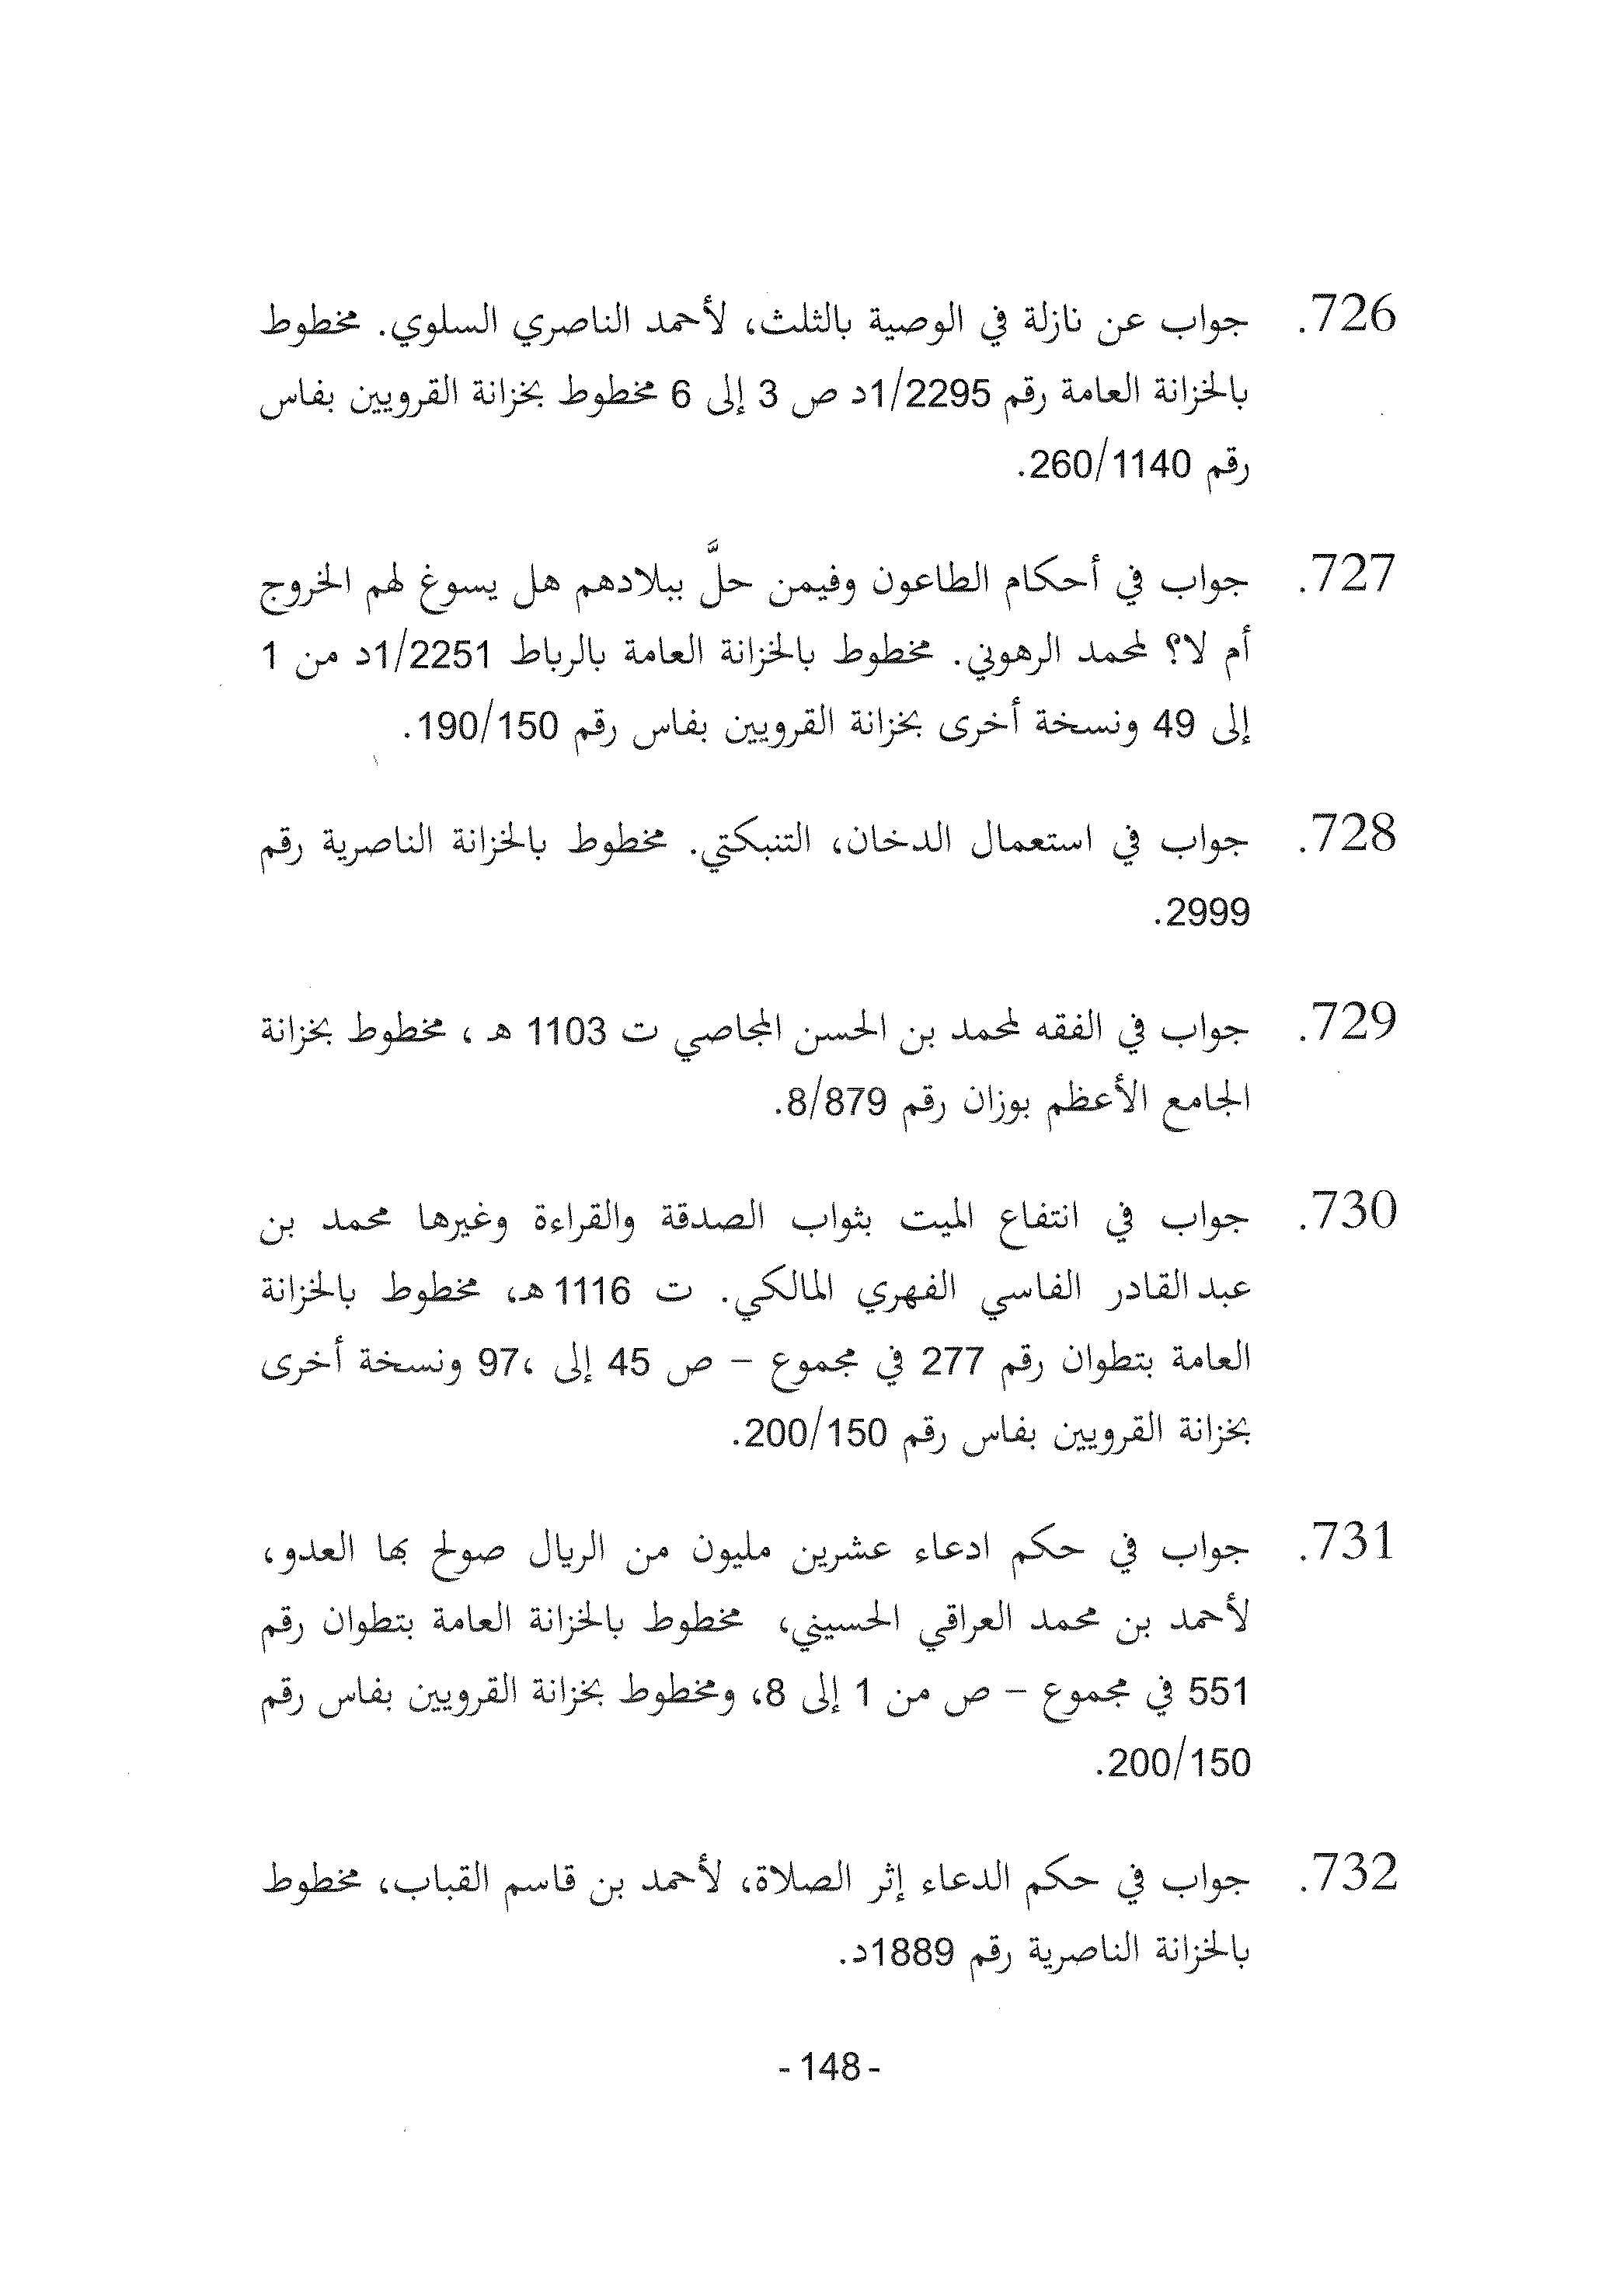 726. جواب عن نازلة في الوصية بالثلث، لأحمد الناصري السلوي. مخطوط
بالخزانة العامة رقم 1/2295د ص 3 إلى 6 مخطوط بخزانة القرويين بفاس
رقم 260/1140.
727. جواب في أحكام الطاعون وفيمن حلَّ ببلادهم هل يسوغ لهم الخروج
أم لا؟ لمحمد الرهوني. مخطوط بالخزانة العامة بالرباط 1/2251د من 1
إلى 49 ونسخة أخرى بخزانة القرويين بفاس رقم 190/150.
728. جواب في استعمال الدخان، التنبكتي. مخطوط بالخزانة الناصرية رقم
2999.
729. جواب في الفقه لمحمد بن الحسن المجاصي ت 1103 هـ ، مخطوط بخزانة
الجامع الأعظم بوزان رقم 8/879.
730. جواب في انتفاع الميت بثواب الصدقة والقراءة وغيرها محمد بن
عبد القادر الفاسي الفهري المالكي. ت 1116هـ، مخطوط بالخزانة
العامة بتطوان رقم 277 في مجموع – ص 45 إلى ،97 ونسخة أخرى
بخزانة القرويين بفاس رقم 200/150.
731. جواب في حكم ادعاء عشرين مليون من الريال صولح بها العدو،
لأحمد بن محمد العراقي الحسيني، مخطوط بالخزانة العامة بتطوان رقم
551 في مجموع – ص من 1 إلى 8، ومخطوط بخزانة القرويين بفاس رقم
200/150.
732. جواب في حكم الدعاء إثر الصلاة، لأحمد بن قاسم القباب، مخطوط
بالخزانة الناصرية رقم 1889د.
- 148 -